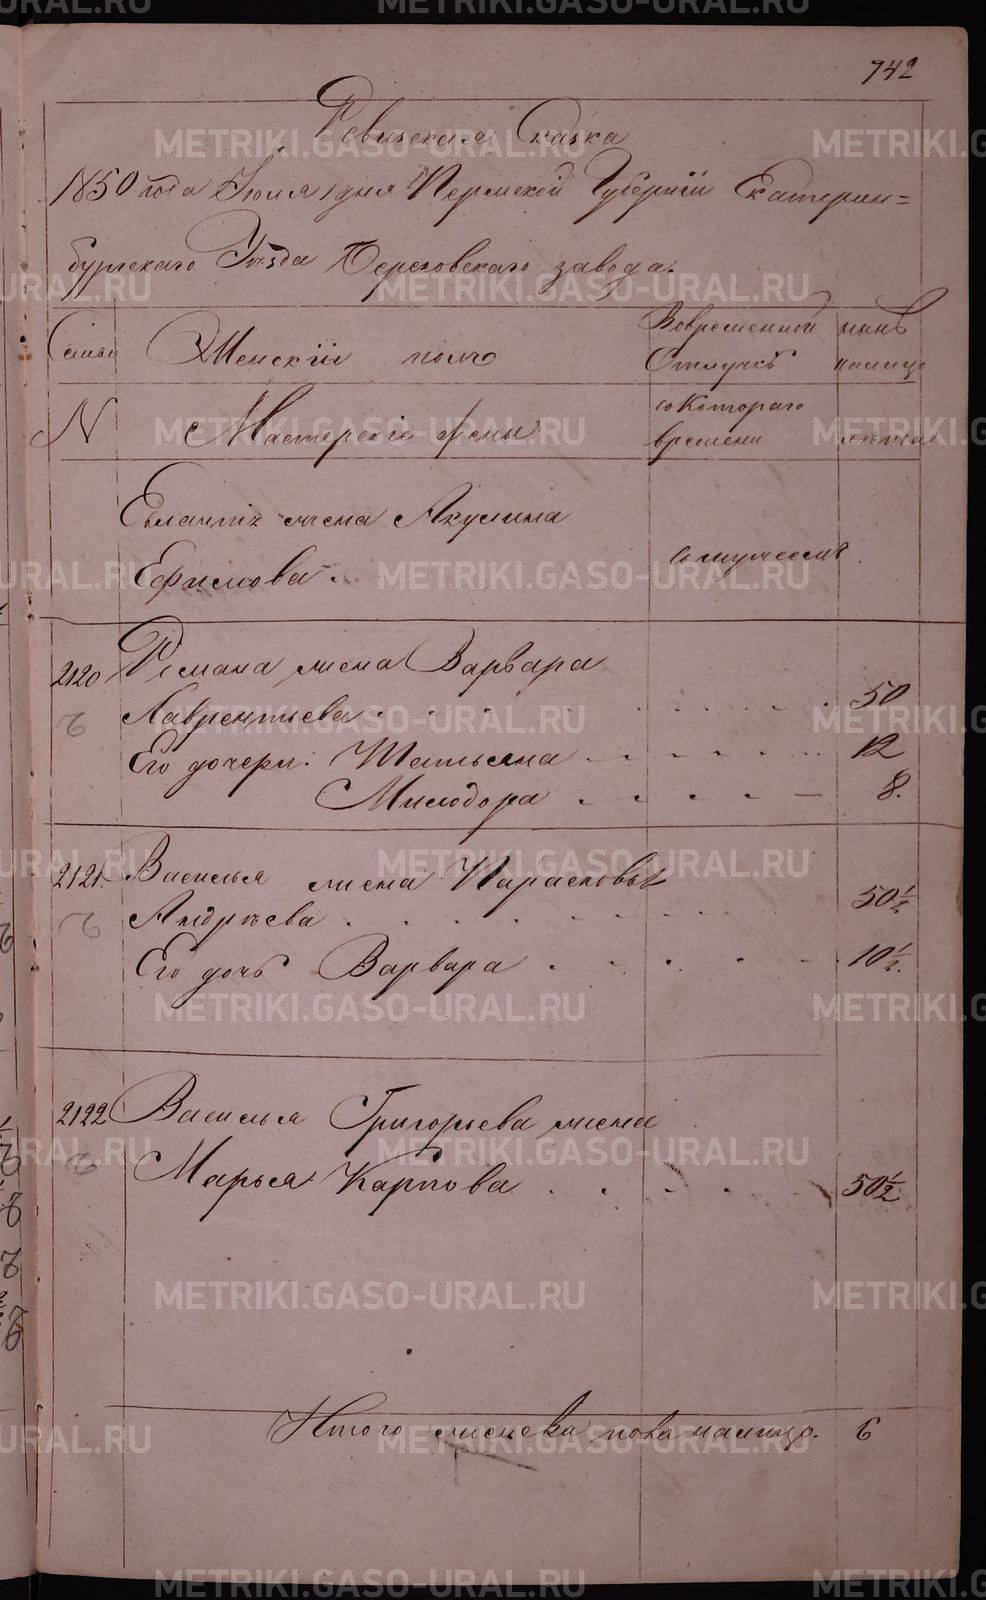 742
Ревизская Сказка
1850 года Июля 1 дня Пермской Губернїи Екатерин=
бургскаго Уѣзда Березовскаго завода.
Семьи Женскїй полъ Вовременной нынѣ
Отлучкѣ налицо
N Мастерскїе жены со Котораго
времени лѣта
Евлампїя жена Акулина
Ефимова. смужеемъ.
2120 Романа жена Варвара
Лаврентьева 50
Его дочери: Татьяна 12
Милодора 8.
2121. Василья жена Парасковья
Андрѣева 50½
Его дочь Варвара 10½.
2122 Василья Григорьева жена
Марья Карпова 50½
Итого женска пола налицо. 6
METRIKI.GASO-URAL.RU